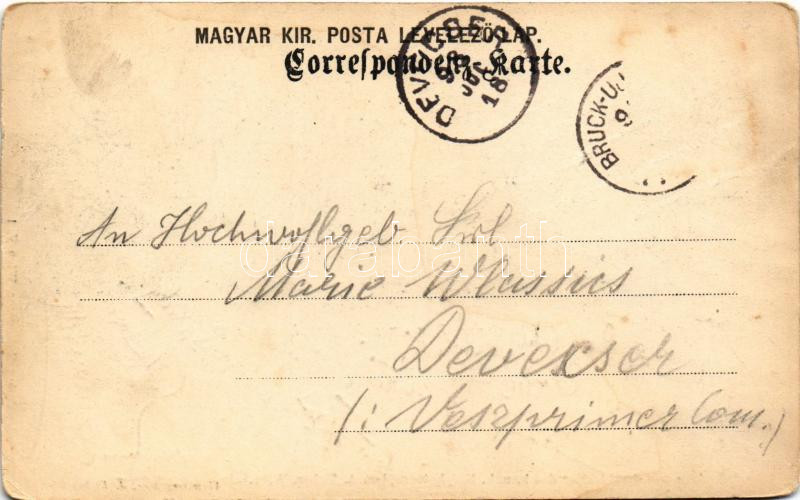 MAGYAR KIR. POSTA LEVELEZŐ-LAP.
Correspondenz-Karte.
DEVECSER
BRUCK-U
An Hochwohlgeb. Frl
Marie Wlassics
Devecser
/: Veszprimer Com.)
darabanth